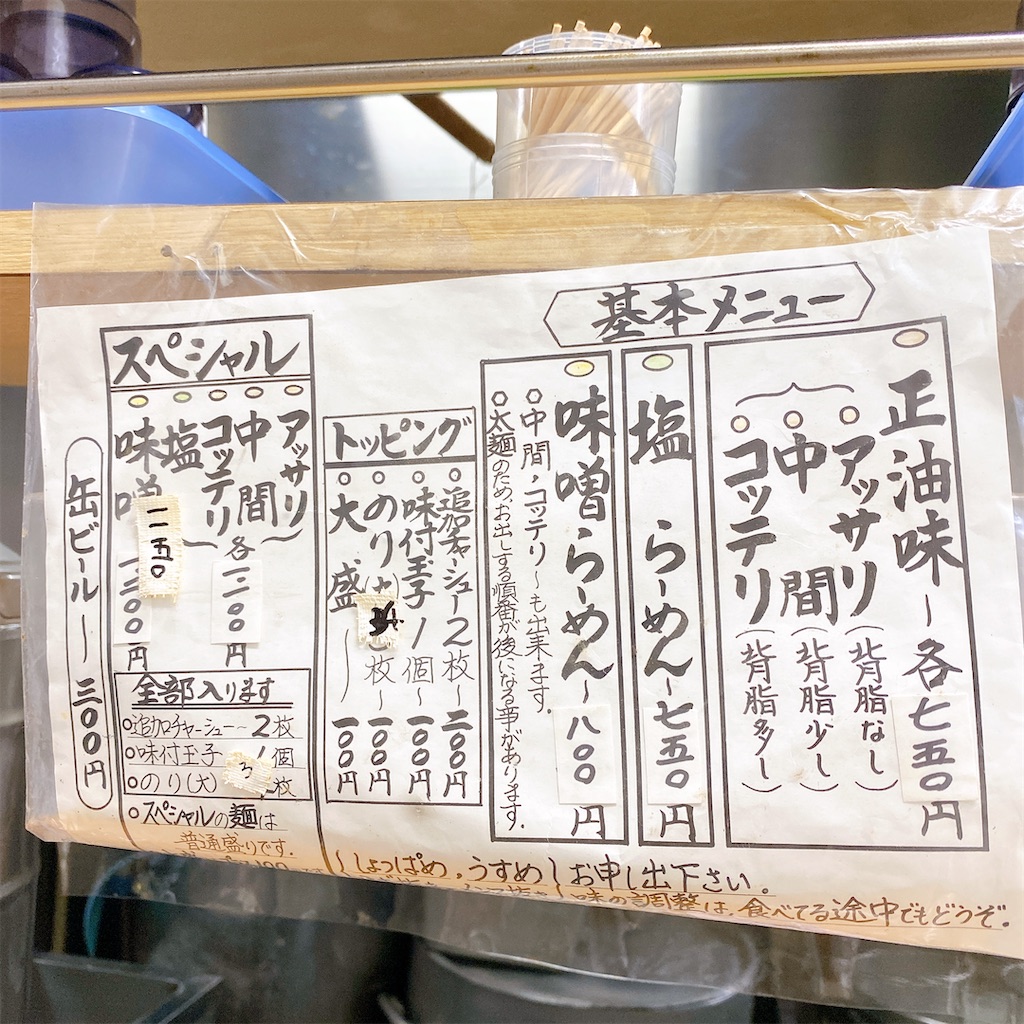 基本メニュー
正油味〜各七五〇円
アッサリ(背脂なし)
中間(背脂少し)
コッテリ(背脂多し)
塩らーめん〜七五〇円
味噌らーめん〜八〇〇円
○中間、コッテリ〜も出来ます。
○太麺のため、お出しする順番が後になる事があります。
トッピング
○追加チャーシュー2枚〜二〇〇円
○味付玉子1個〜一〇〇円
○のり(大)3枚〜一〇〇円
○大盛〜一〇〇円
スペシャル
アッサリ
中間
コッテリ
〜各一一〇〇円
塩
味噌
一一五〇
円
全部入ります
○追加チャーシュー〜2枚
○味付玉子1個
○のり(大)3枚
○スペシャルの麺は
普通盛りです。
缶ビール〜三〇〇円
〜しょっぱめ、うすめ〜お申し出下さい。
味の調整は、食べてる途中でもどうぞ。